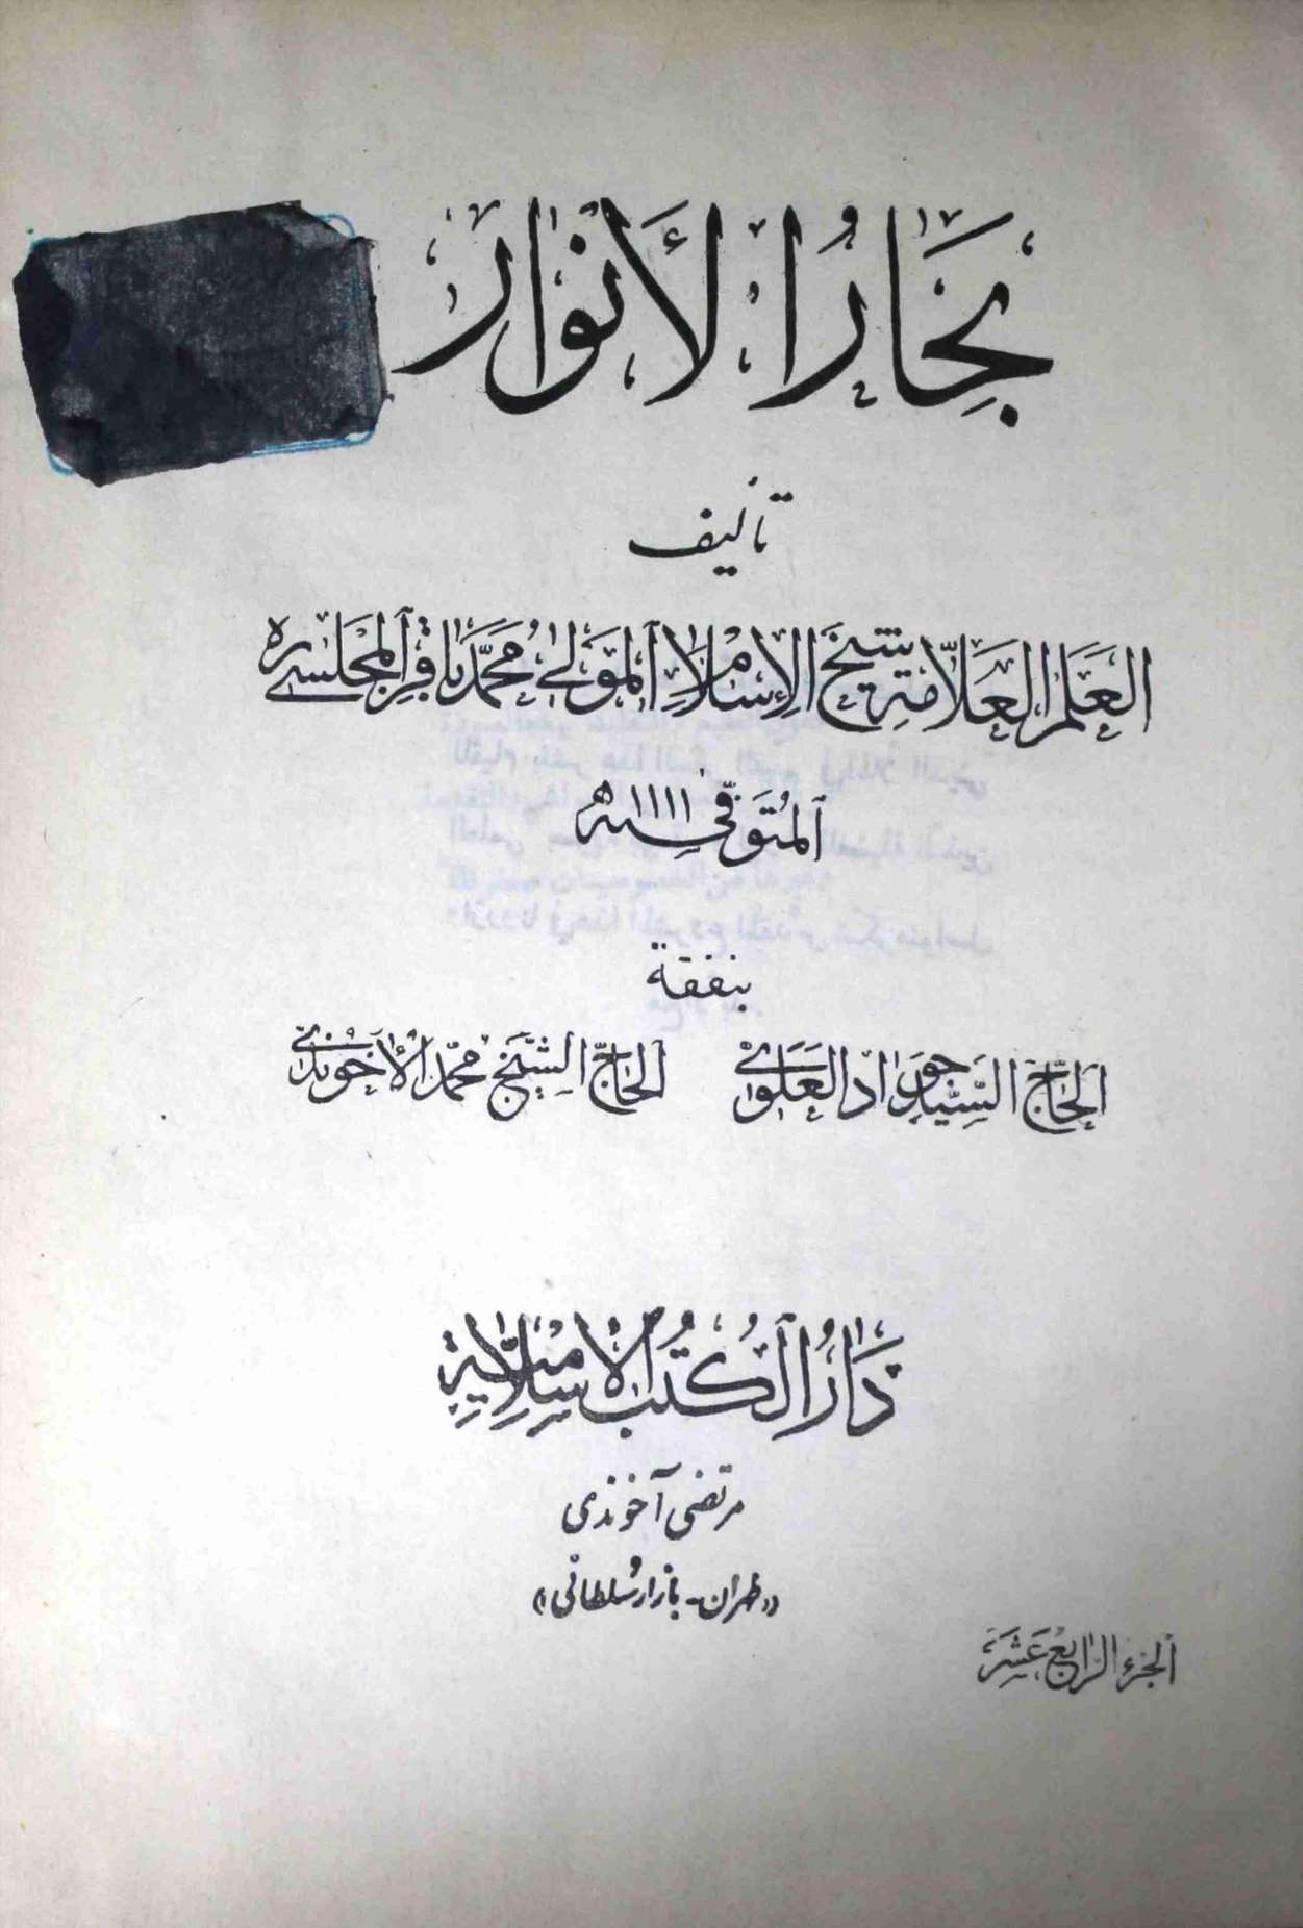 بِحَارُ الأَنْوَار
تأليف
العَلَم العَلّامَة شَيخ الإسْلام المَولى مُحَمَّد بَاقِر المَجْلِسي ره
المُتَوَفّى سنه ١١١١ ه
بنفقة
الحَاجّ السَّيد جَوَاد العَلَوي الحَاجّ الشَّيخ مُحَمّد الأخُوندي
دَارُ الكُتُب الإسْلامِيَّة
مرتضى آخوندى
«طهران - بازار سلطانى»
الجزء الرابع عَشَر